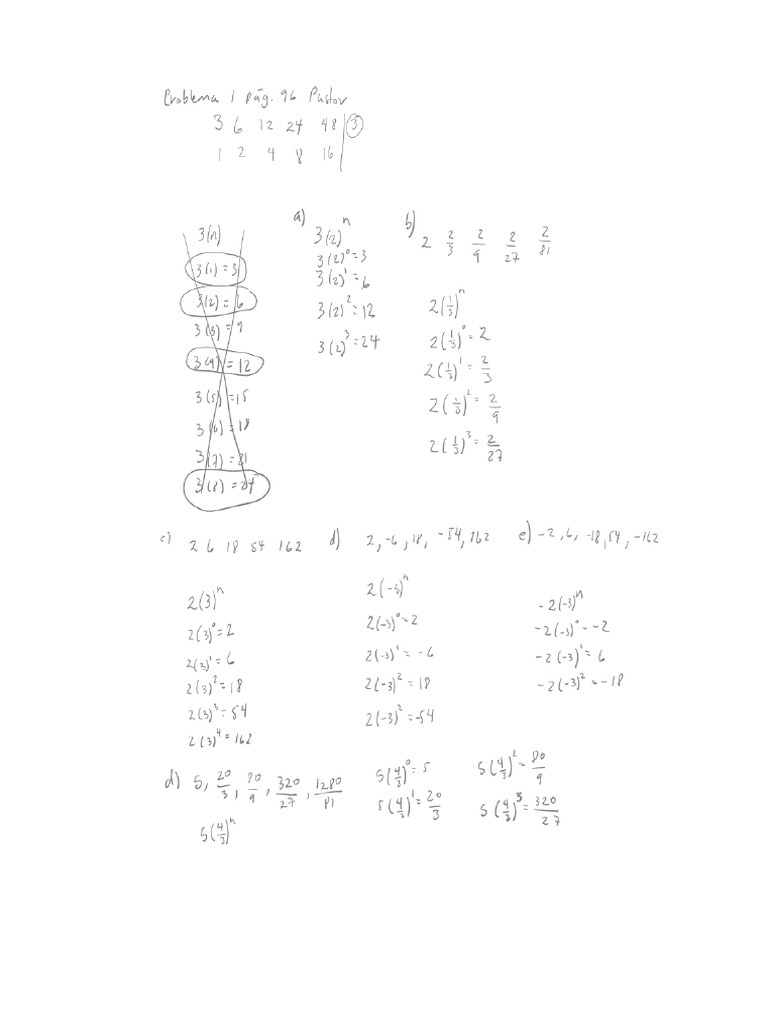 Problema 1 pág. 96 Pastor
3 6 12 24 48 | 3
1 2 4 8 16
3(n)
3(1) = 3
3(2) = 6
3(3) = 9
3(4) = 12
3(5) = 15
3(6) = 18
3(7) = 21
3(8) = 24
a)
3(2)^n
3(2)^0 = 3
3(2)^1 = 6
3(2)^2 = 12
3(2)^3 = 24
b) 2 2/3 2/9 2/27 2/81
2(1/3)^n
2(1/3)^0 = 2
2(1/3)^1 = 2/3
2(1/3)^2 = 2/9
2(1/3)^3 = 2/27
c) 2 6 18 54 162
2(3)^n
2(3)^0 = 2
2(3)^1 = 6
2(3)^2 = 18
2(3)^3 = 54
2(3)^4 = 162
d) 2, -6, 18, -54, 162
2(-3)^n
2(-3)^0 = 2
2(-3)^1 = -6
2(-3)^2 = 18
2(-3)^2 = -54
e) -2, 6, -18, 54, -162
-2(-3)^n
-2(-3)^0 = -2
-2(-3)^1 = 6
-2(-3)^2 = -18
d) 5, 20/3, 80/9, 320/27, 1280/81
5(4/3)^n
5(4/3)^0 = 5
5(4/3)^1 = 20/3
5(4/3)^2 = 80/9
5(4/3)^3 = 320/27